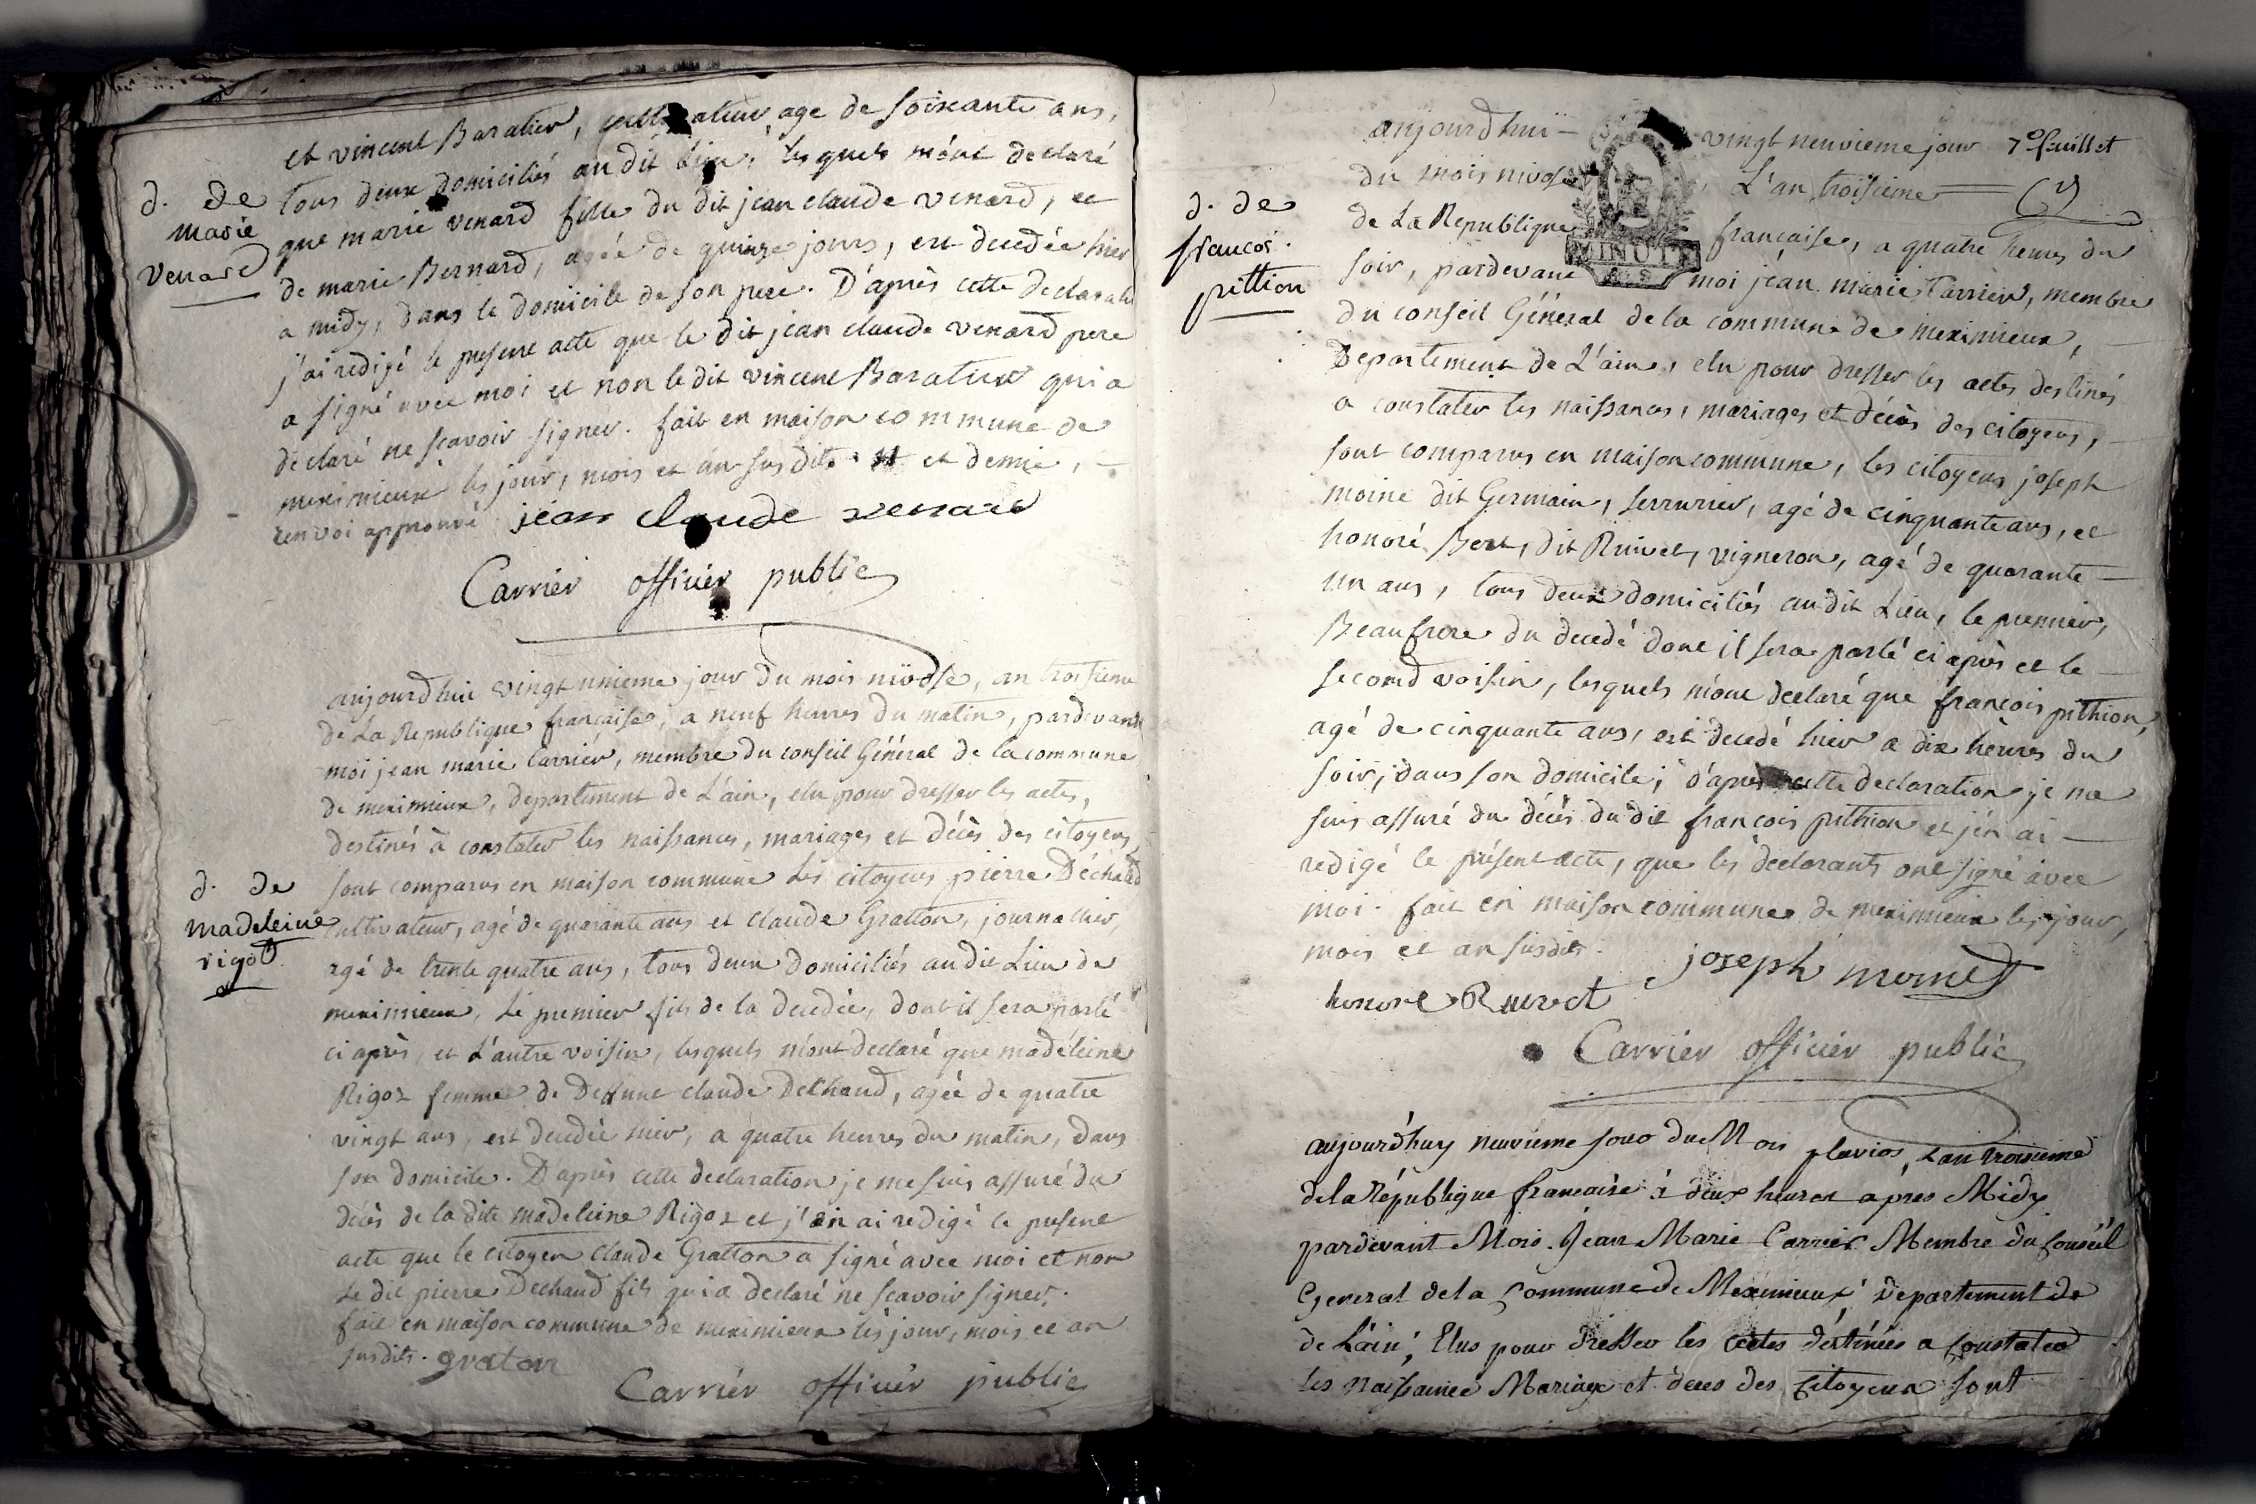 et vincent Baratier, cultivateur age de soixante ans,
tous deux domiciliés au dit Lieu, lesquels m'ont declaré
que marie venard fille du dit jean claude venard, et
de marie Bernard, agée de quinze jours, est decedée hier
a midy, dans le domicile de son pere. D'après cette declarat
j'ai redigé le present acte que le dit jean claude venard pere
a signé avec moi et non le dit vincent Baratier qui a
declaré ne scavoir signer. fait en maison commune de
meximieux les jour, mois et an susdits. et demie,
renvoi approuvé jean claude venard
Carrier officier public
d. de
marie
venard
aujourd'hui vingt unieme jour du mois nivose, an troisieme
de La Republique française, a neuf heures du matin, pardevant
moi jean marie Carrier, membre du conseil Général de la commune
de meximieux, departement de L'ain, elu pour dresser les actes,
destinés à constater les naissances, mariages et décès des citoyens,
sont comparus en maison commune Les citoyens pierre Dechaud
cultivateur, agé de quarante ans et claude Gratton, journallier,
agé de trente quatre ans, tous deux domiciliés au dit Lieu de
meximieux, Le premier fils de la decedée, dont il sera parlé
ci après, et L'autre voisin, lesquels m'ont declaré que madeleine
Rigoz femme de Deffunt claude Dechaud, agée de quatre
vingt ans, est decedée hier, a quatre heures du matin, dans
son domicile. D'après cette declaration je me suis assuré du
décès de la dite madeleine Rigoz et j'en ai redigé le present
acte que le citoyen claude Gratton a signé avec moi et non
Le dit pierre Dechaud fils qui a declaré ne scavoir signer.
fait en maison commune de meximieux les jour, mois et an
susdits. graton
Carrier officier public
d. de
madeleine
rigot
aujourd'hui vingt neuvieme jour 7e feuillet
du mois nivose L'an troisieme
de La Republique française, a quatre heures du
MINUTE
soir, pardevant moi jean marie Carrier, membre
du conseil Général de la commune de meximieux,
Departement de L'ain, elu pour dresser les actes destinés
a constater les naissances, mariages et décès des citoyens,
sont comparus en maison commune, les citoyens joseph
moine dit Germain, serrurier, agé de cinquante ans, et
honoré Bert, dit Ruivet, vigneron, agé de quarante
un ans, tous deux domiciliés au dit Lieu, le premier,
Beaufrere du decedé dont il sera parlé ci après et le
second voisin, lesquels m'ont declaré que françois pithion,
agé de cinquante ans, est decedé hier a dix heures du
soir, dans son domicile; d'après cette declaration je me
suis assuré du décès du dit françois pithion et j'en ai
redigé le présent acte, que les declarants ont signé avec
moi. fait en maison commune de meximieux les jour,
mois et an susdits.
joseph moine
honore Ruivet
Carrier officier public
d. de
francois
pittion
aujourd'huy neuvieme jour du Mois pluvios, L'an troisieme
de la République française à deux heures après Midy
pardevant Moi Jean Marie Carrier Membre du Conseil
General de la Commune de Meximieux, Departement de
de L'ain, Elus pour dresser les actes déstinées a Constater
les Naissance Mariage et deces des Citoyens sont